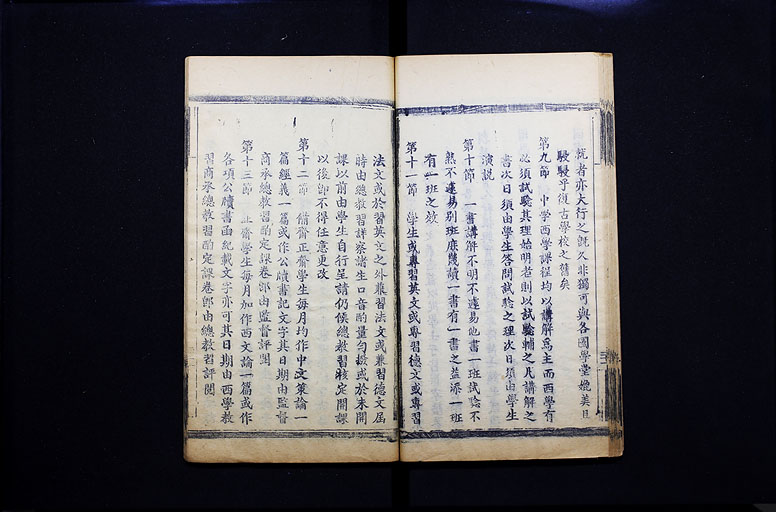 執者亦大行之旣久非獨可與各國學堂媲美且
駸駸乎復古學校之舊矣
第九節 中學西學課程均以講解爲主而西學有
必須試驗其理始明者則以試驗輔之凡講解之
書次日須由學生答問試驗之理次日須由學生
演說
第十節 一書講解不明不遽易他書一班試驗不
熟不遽易別班庶幾讀一書有一書之益添一班
有一班之效
第十一節 學生或專習英文或專習德文或專習
法文或於習英文之外兼習法文或兼習德文屆
時由總教習詳察諸生口音酌量勻撥或於未開
課以前由學生自行呈請仍候總教習核定開課
以後卽不得任意更改
第十二節 備齋正齋學生每月均作中文策論一
篇經義一篇或作公牘書記文字其日期由監督
商承總教習酌定課卷卽由監督評閱
第十三節 正齋學生每月加作西文論一篇或作
各項公牘書函紀載文字亦可其日期由西學教
習商承總教習酌定課卷卽由總教習評閱